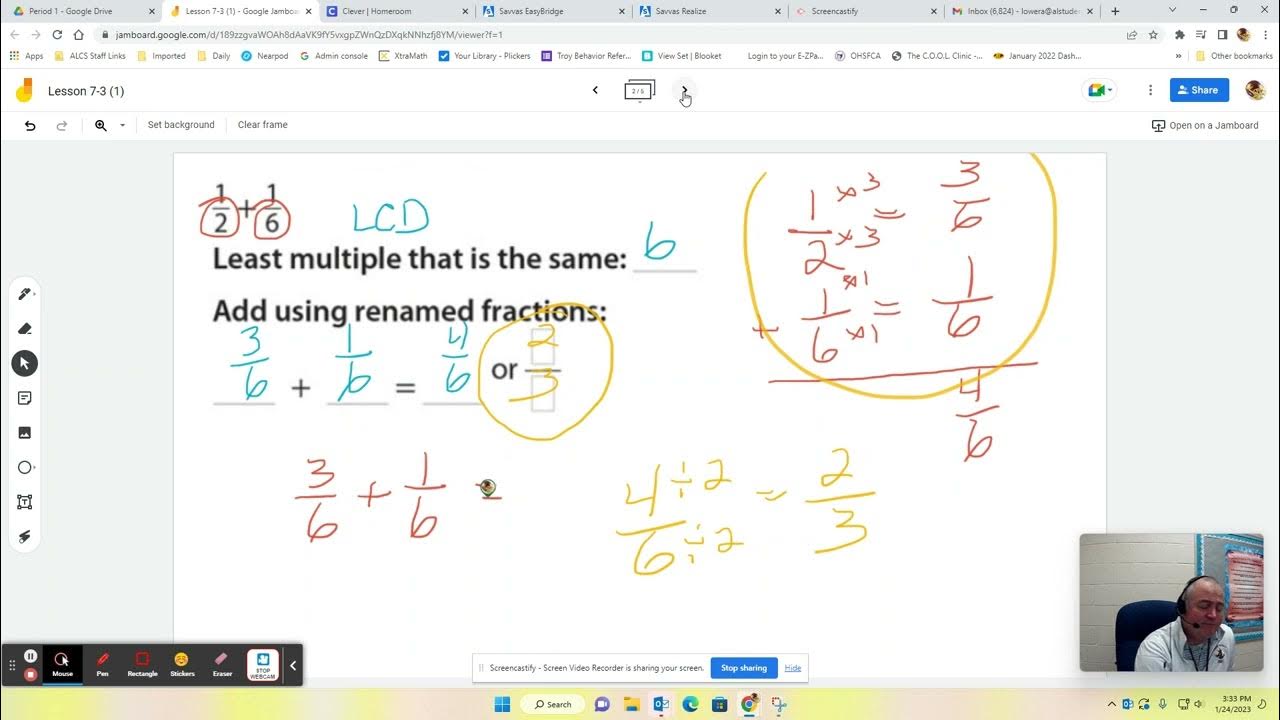 Period 1 - Google Drive
Lesson 7-3 (1) - Google Jamboa
Clever | Homeroom
Savvas EasyBridge
Savvas Realize
Screencastify
Inbox (6,824) - lowera@alstude
jamboard.google.com/d/189zzgvaWOAh8dAaVK9fY5vxgpZWnQzDXqkNNhzfj8YM/viewer?f=1
Apps
ALCS Staff Links
Imported
Daily
Nearpod
Admin console
XtraMath
Your Library - Plickers
Troy Behavior Refer...
View Set | Blooket
Login to your E-ZPa...
OHSFCA
The C.O.O.L. Clinic -...
January 2022 Dash...
Other bookmarks
Lesson 7-3 (1)
2 / 5
Share
Set background
Clear frame
Open on a Jamboard
1/2 + 1/6
LCD
Least multiple that is the same: 6
Add using renamed fractions:
3/6 + 1/6 = 4/6 or 2/3
1/2 ×3 ×3 = 3/6
+ 1/6 ×1 ×1 = 1/6
4/6
3/6 + 1/6 =
4/6 ÷2 ÷2 = 2/3
Mouse
Pen
Rectangle
Stickers
Eraser
STOP WEBCAM
Screencastify - Screen Video Recorder is sharing your screen.
Stop sharing
Hide
Search
3:33 PM
1/24/2023